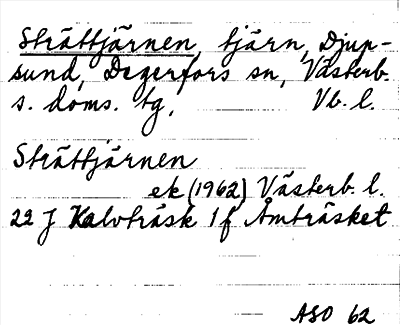 Strättjärnen, tjärn, Djup-
sund, Degerfors sn, Västerb.
s. doms. tg, Vb. l.
Strättjärnen
ek (1962) Västerb. l.
22 J Kalvträsk 1 f Åmträsket
ASO 62